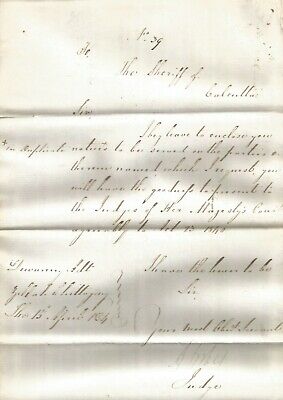 No 39
To
The Sheriff of
Calcutta
Sir
I beg leave to enclose you
in duplicate notices to be served on the parties
therein named which I request, you
will have the goodness to present to
the Judges of Her Majesty's Court
agreeably to Act 1840
Dewanny Adt
Zillah Chittagong
The 13 April 184
I have the honor to be
Sir
Your most Obedt Servant
Judge